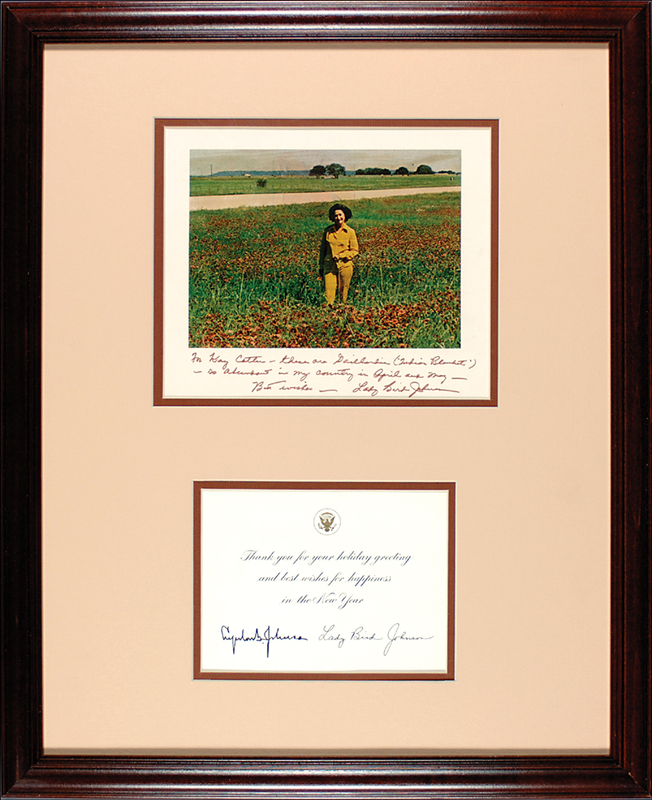 For Kay Cotter – these are Gaillardia (Indian Blanket!)
– so abundant in my country in April and May –
Best wishes – Lady Bird Johnson
Thank you for your holiday greeting
and best wishes for happiness
in the New Year
Lyndon B. Johnson Lady Bird Johnson